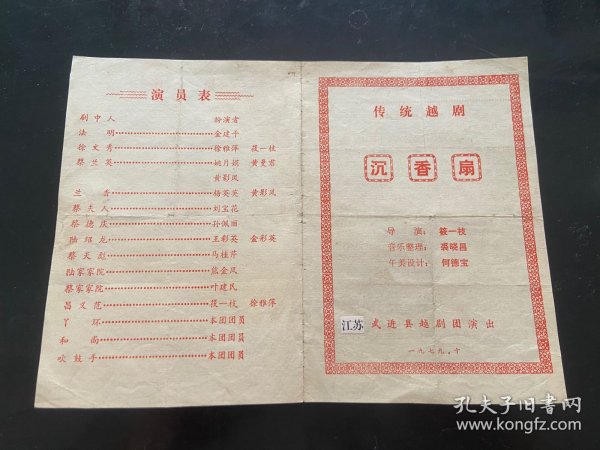 演员表
剧中人 扮演者
法明 金建平
徐文秀 徐雅萍 筱一枝
蔡兰英 姚月娟 黄曼君
黄彩凤
兰香 杨英英 黄彩凤
蔡夫人 刘宝花
蔡德庆 孙佩丽
陆绍龙 王彩英 金彩英
蔡天彪 马桂芹
陆家家院 熊金凤
蔡家家院 叶建民
昌义范 筱一枝 徐雅萍
丫环 本团团员
和尚 本团团员
吹鼓手 本团团员
传统越剧
沉香扇
导演：筱一枝
音乐整理：裘晓昌
午美设计：何德宝
江苏 武进县越剧团演出
一九七九.十
孔夫子旧书网
www.kongfz.com